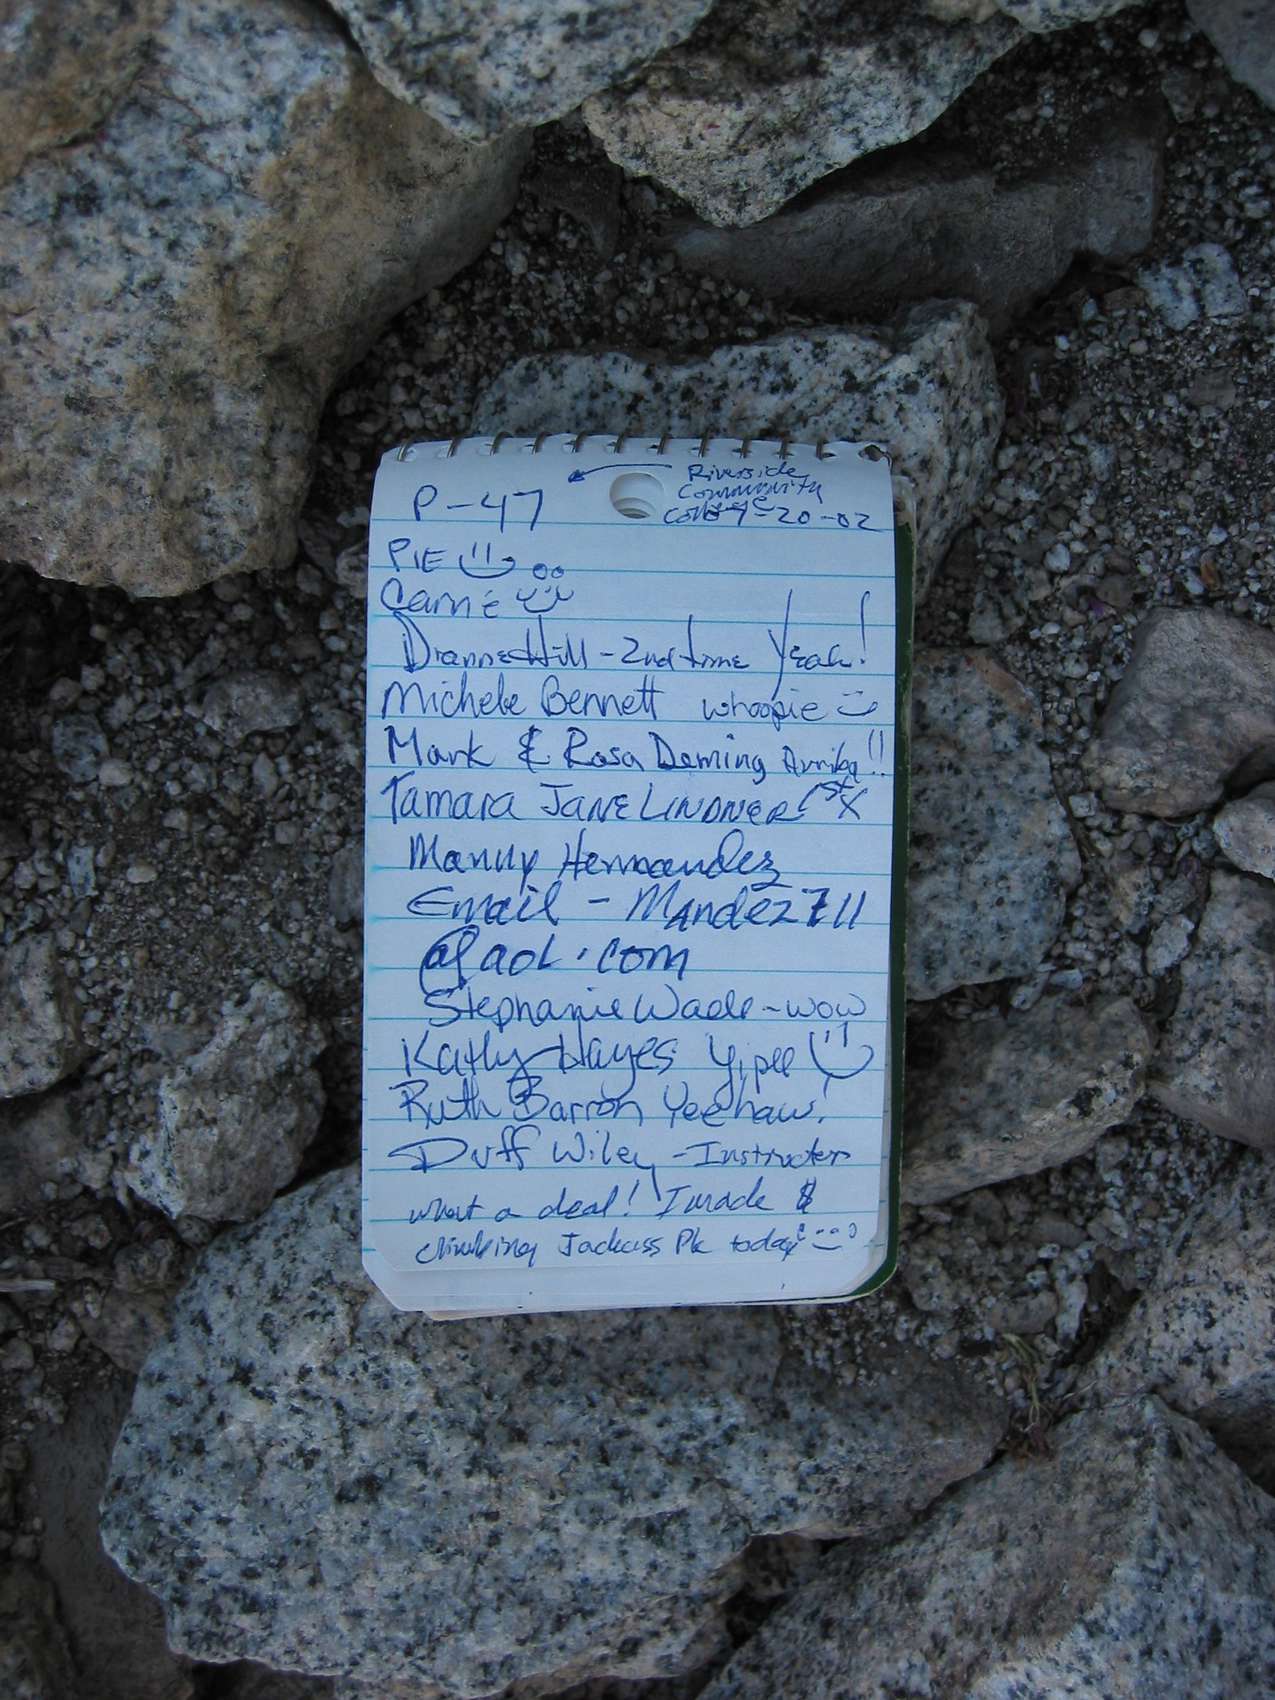 Riverside
Community
College
P-47 9-20-02
PIE
Carrie
Dianne Hill - 2nd time Yeah!
Michele Bennett whoopie
Mark & Rosa Deming Arriba!!
Tamara JANE LINDNER 1st X
Manny Hernandez
Email - Mandez711
@aol.com
Stephanie Wade - wow
Kathy Hayes Yipee
Ruth Barron Yeehaw!
Duff Wiley - Instructor
what a deal! I made $
climbing Jackass Pk today!